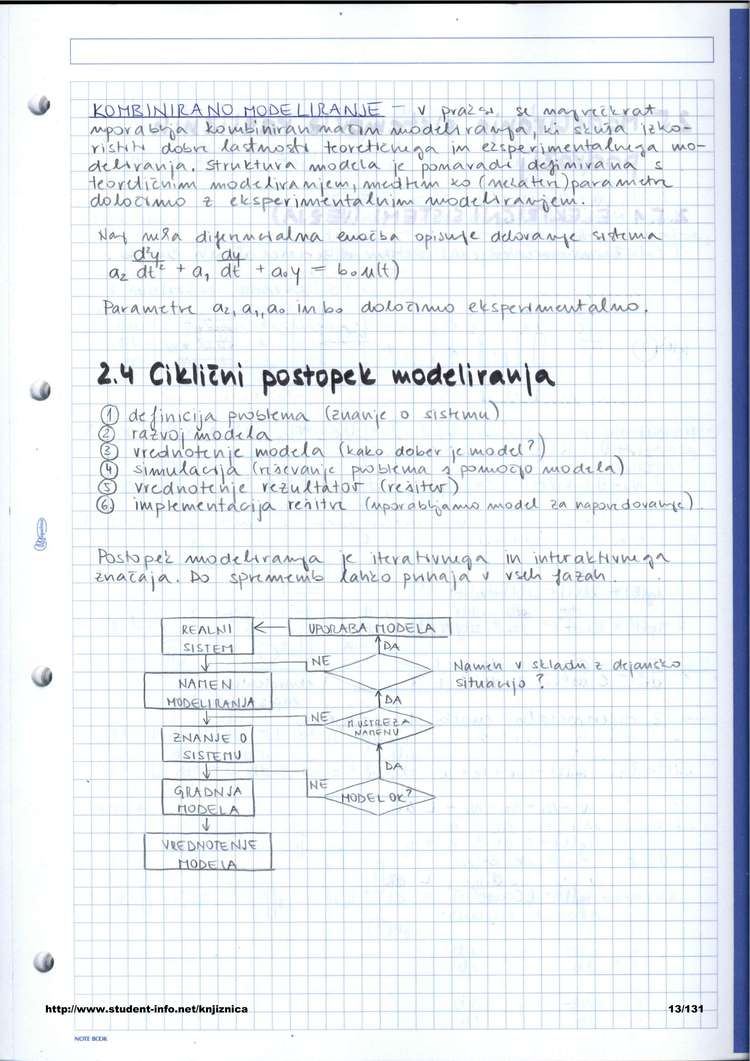 KOMBINIRANO MODELIRANJE – v praksi se največkrat
uporablja kombiniran način modeliranja, ki skuša izko-
ristiti dobre lastnosti teoretičnega in eksperimentalnega mo-
deliranja. Struktura modela je ponavadi definirana s
teoretičnim modeliranjem, medtem ko (nekateri) parametre
določimo z eksperimentalnim modeliranjem.
Naj neka diferencialna enačba opisuje delovanje sistema
a₂ d²y/dt² + a₁ dy/dt + a₀y = b₀u(t)
Parametre a₂, a₁, a₀ in b₀ določimo eksperimentalno.
2.4 Ciklični postopek modeliranja
① definicija problema (znanje o sistemu)
② razvoj modela
③ vrednotenje modela (kako dober je model?)
④ simulacija (reševanje problema s pomočjo modela)
⑤ vrednotenje rezultatov (rešitev)
⑥ implementacija rešitve (uporabljamo model za napovedovanje)
Postopek modeliranja je iterativnega in interaktivnega
značaja. Do sprememb lahko prihaja v vseh fazah.
REALNI
SISTEM
UPORABA MODELA
DA
NE
Namen v skladu z dejansko
situacijo?
NAMEN
MODELIRANJA
DA
NE
M. USTREZA
NAMENU
ZNANJE O
SISTEMU
DA
NE
MODEL OK?
GRADNJA
MODELA
VREDNOTENJE
MODELA
http://www.student-info.net/knjiznica
13/131
NOTE BOOK